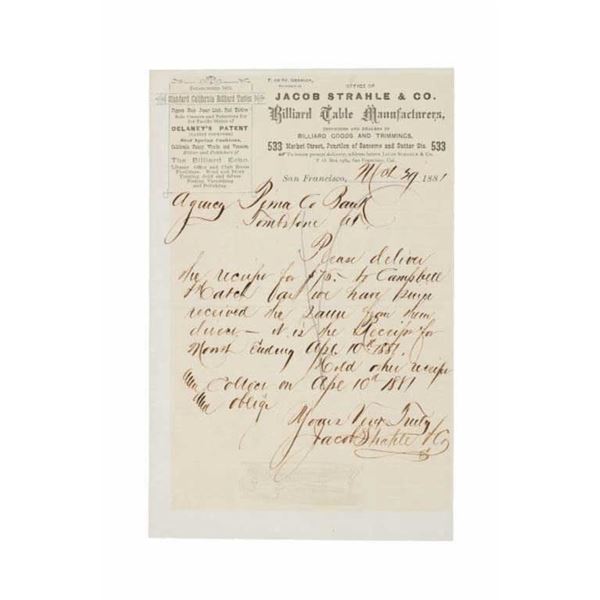 ESTABLISHED
Standard California Billiard Tables
DELANEY'S PATENT
Steel Spring Cushions,
The Billiard Echo.
OFFICE OF
JACOB STRAHLE & CO.
Billiard Table Manufacturers,
IMPORTERS AND DEALERS IN
BILLIARD GOODS AND TRIMMINGS,
533 Market Street, Junction of Sansome and Sutter Sts. 533
To insure prompt delivery, address letters JACOB STRAHLE & CO.
P. O. Box San Francisco, Cal.
San Francisco, Mch 29 1881
Agency Pima Co Bank
Tombstone At.
Please deliver
the receipt for $75.- to Campbell
& Hatch we have
received the same from them
direct - it is the Receipt for
Month Ending Apl 10th 1881.
Hold other receipt
Collect on Apl 10th 1881
and oblige
Yours Very Truly
Jacob Strahle & Co